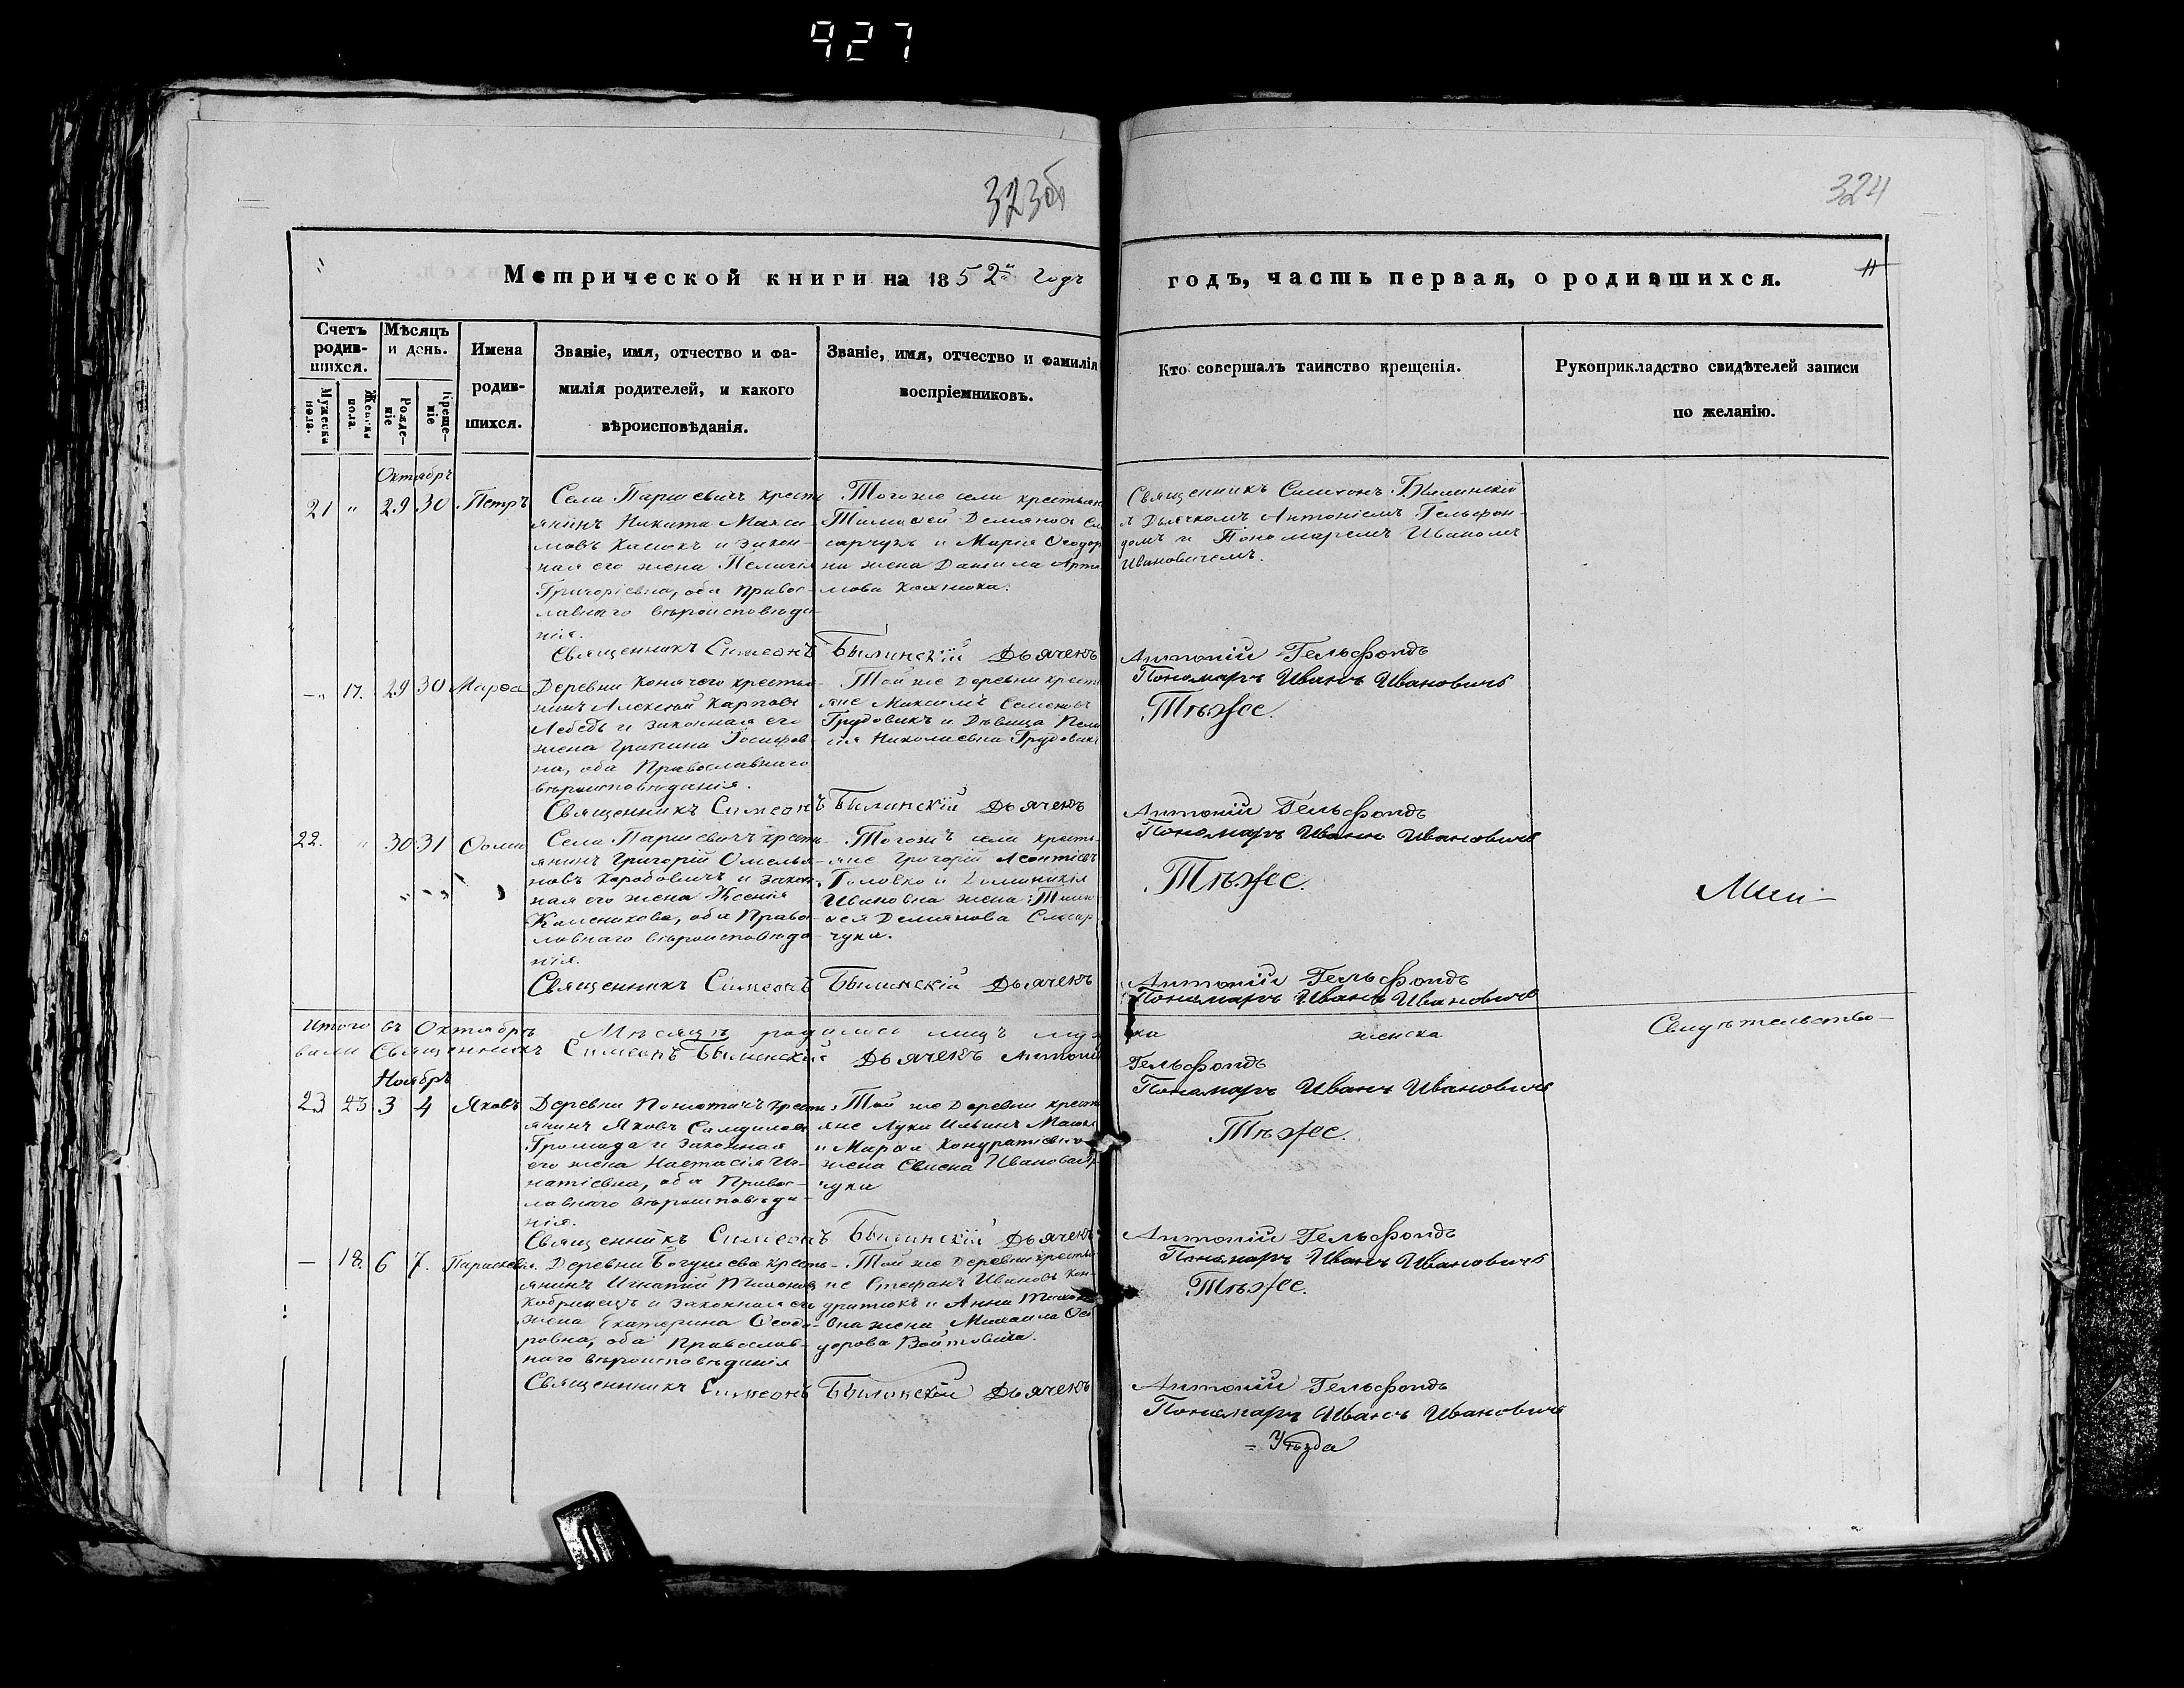 927
323об
324
Метрической книги на 1852й годъ
годъ, часть первая, о родившихся.
11
Счетъ родившихся.
Мужеска пола.
Женска пола.
Мѣсяцъ и день.
Рожденіе
Крещеніе
Имена родившихся.
Званіе, имя, отчество и фамилія родителей, и какого вѣроисповѣданія.
Званіе, имя, отчество и фамилія воспріемниковъ.
Кто совершалъ таинство крещенія.
Рукоприкладство свидѣтелей записи по желанію.
Октябръ
21 " 29 30 Петръ
Села Паршевичъ кресть
янинъ Никита Макси
мовъ и закон-
ная его жена Пелагія
Григоріевна, оба Правос-
лавнаго вѣроисповѣда
нія.
Тогоже села крестьяне
Тимофей Демянов
сарчукъ и Марія Ѳеодор
на жена Данила Арте
мова
Священникъ Симеонъ Былинскій
съ Дьячкомъ Антоніемъ Гельфон-
домъ и Пономаремъ Иваномъ
Ивановичемъ.
Священникъ Симеонъ Былинскій Дьяченъ Антоній Гельфондъ
Пономаръ Иванъ Ивановичъ
" 17. 29 30 Марѳа
Деревни крестья-
нинъ Алексѣй Карповъ
Лебедь и законная его
жена Іосифов
на, оба Православнаго
вѣроисповѣданія.
Той же Деревни кресть
яне Максимъ Семеновъ
Грудовикъ и Дѣвица Пела
гія Николаевна Грудовикъ
Тѣже.
Священникъ Симеонъ Былинскій Дьяченъ Антоній Гельфондъ
Пономаръ Иванъ Ивановичъ
22. " 30 31 Ѳома
Села Паршевичъ кресть
янинъ Григорій Омелья-
новъ Коробовичъ и закон-
ная его жена Ксенія
оба Правос-
лавнаго вѣроисповѣда
нія.
Тогожъ села кресть-
яне Григорій Леонтіевъ
Головко и
Ивановна жена Тимо
ѳея Демянова Слесар
чука.
Тѣже.
Священникъ Симеонъ Былинскій Дьяченъ Антоній Гельфондъ
Пономаръ Иванъ Ивановичъ
Итого въ Октябрѣ Мѣсяцѣ родилось лицъ муж ка женска Свидѣтельство-
вали Священникъ Симеонъ Былинскій Дьяченъ Антоній Гельфондъ
Пономаръ Иванъ Ивановичъ
Ноябръ
23 23 3 4 Яковъ
Деревни кресть
янинъ Яковъ
Громада и законная
его жена Настасія Иг-
натіевна, оба Правос-
лавнаго вѣроисповѣда-
нія.
Той же Деревни кресть
яне Лука Ильинъ
и Марѳа Кондратіевна
жена Иванова
чука
Тѣже.
Священникъ Симеонъ Былинскій Дьяченъ Антоній Гельфондъ
Пономаръ Иванъ Ивановичъ
— 18. 6 7. Параскевія
Деревни Богушева кресть-
янинъ Игнатій Тихонов
Кобринецъ и законная его
жена Екатерина Ѳеодо-
ровна, оба Православ-
наго вѣроисповѣданія
Той же Деревни крестья
не Стефанъ Ивановъ Кон-
дратюкъ и Анна
вна жена Михаила Ѳео
дорова Войтовича.
Тѣже.
Священникъ Симеонъ Былинскій Дьяченъ Антоній Гельфондъ
Пономаръ Иванъ Ивановичъ
= Уѣзда